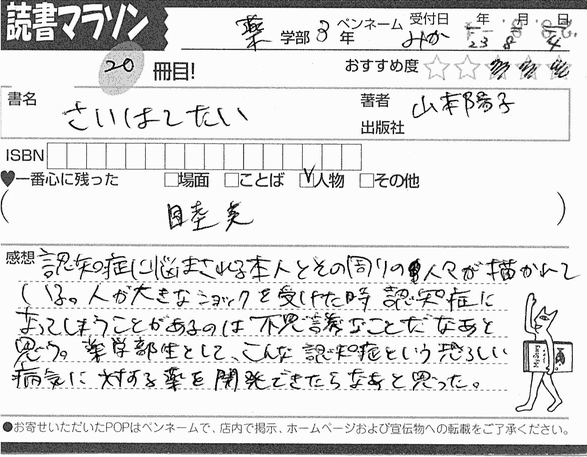 読書マラソン
薬 学部 3 年 ペンネーム みか 受付日 年 月 日 23 8 4
20 冊目! おすすめ度 ☆☆★★★
書名 さいはてたい 著者 山本陽子
出版社
ISBN
♥一番心に残った □場面 □ことば ☑人物 □その他
( 睦実 )
感想 認知症に悩まされる本人とその周りの人々が描かれて
いる。人が大きなショックを受けた時 認知症に
なってしまうことがあるのは不思議なことだなあと
思う。薬学部生として、こんな認知症という恐ろしい
病気に対する薬を開発できたらなあと思った。
●お寄せいただいたPOPはペンネームで、店内で掲示、ホームページおよび宣伝物への転載をご了承ください。